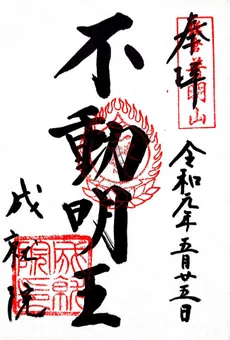 奉拝
令和元年五月廿五日
不動明王
成就院